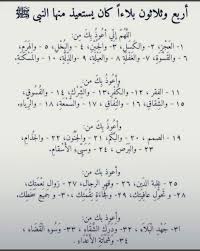 أربع وثلاثون بلاءاً كان يستعيذ منها النبي ﷺ
اللَّهُمَّ إِنِّي أَعُوذُ بِكَ مِن:
١- العجز، ٢- والكسل، ٣- والجبن، ٤- والبخل، ٥- والهرم،
٦- والقسوة، ٧- والغفلة، ٨- والعيلة، ٩- والذلة، ١٠- والمسكنة.
وأعوذ بك من:
١١- الفقر، ١٢- والكفر، ١٣- والشرك، ١٤- والفسوق،
١٥- والشقاق، ١٦- والنفاق، ١٧- والسمعة، ١٨- والرياء.
وأعوذ بك من:
١٩- الصمم، ٢٠- والبكم، ٢١- والجنون، ٢٢- والجذام،
٢٣- والبرص، ٢٤- وسيء الأسقام.
وأعوذ بك من:
٢٥- غلبة الدين، ٢٦- وقهر الرجال، ٢٧- زوال نعمتك،
٢٨- تحول عافيتك، ٢٩- وفجاءة نقمتك، ٣٠- وجميع سخطك.
وأعوذ بك من:
٣١- جهد البلاء، ٣٢- ودرك الشقاء، ٣٣- وسوء القضاء،
٣٤- وشماتة الأعداء.